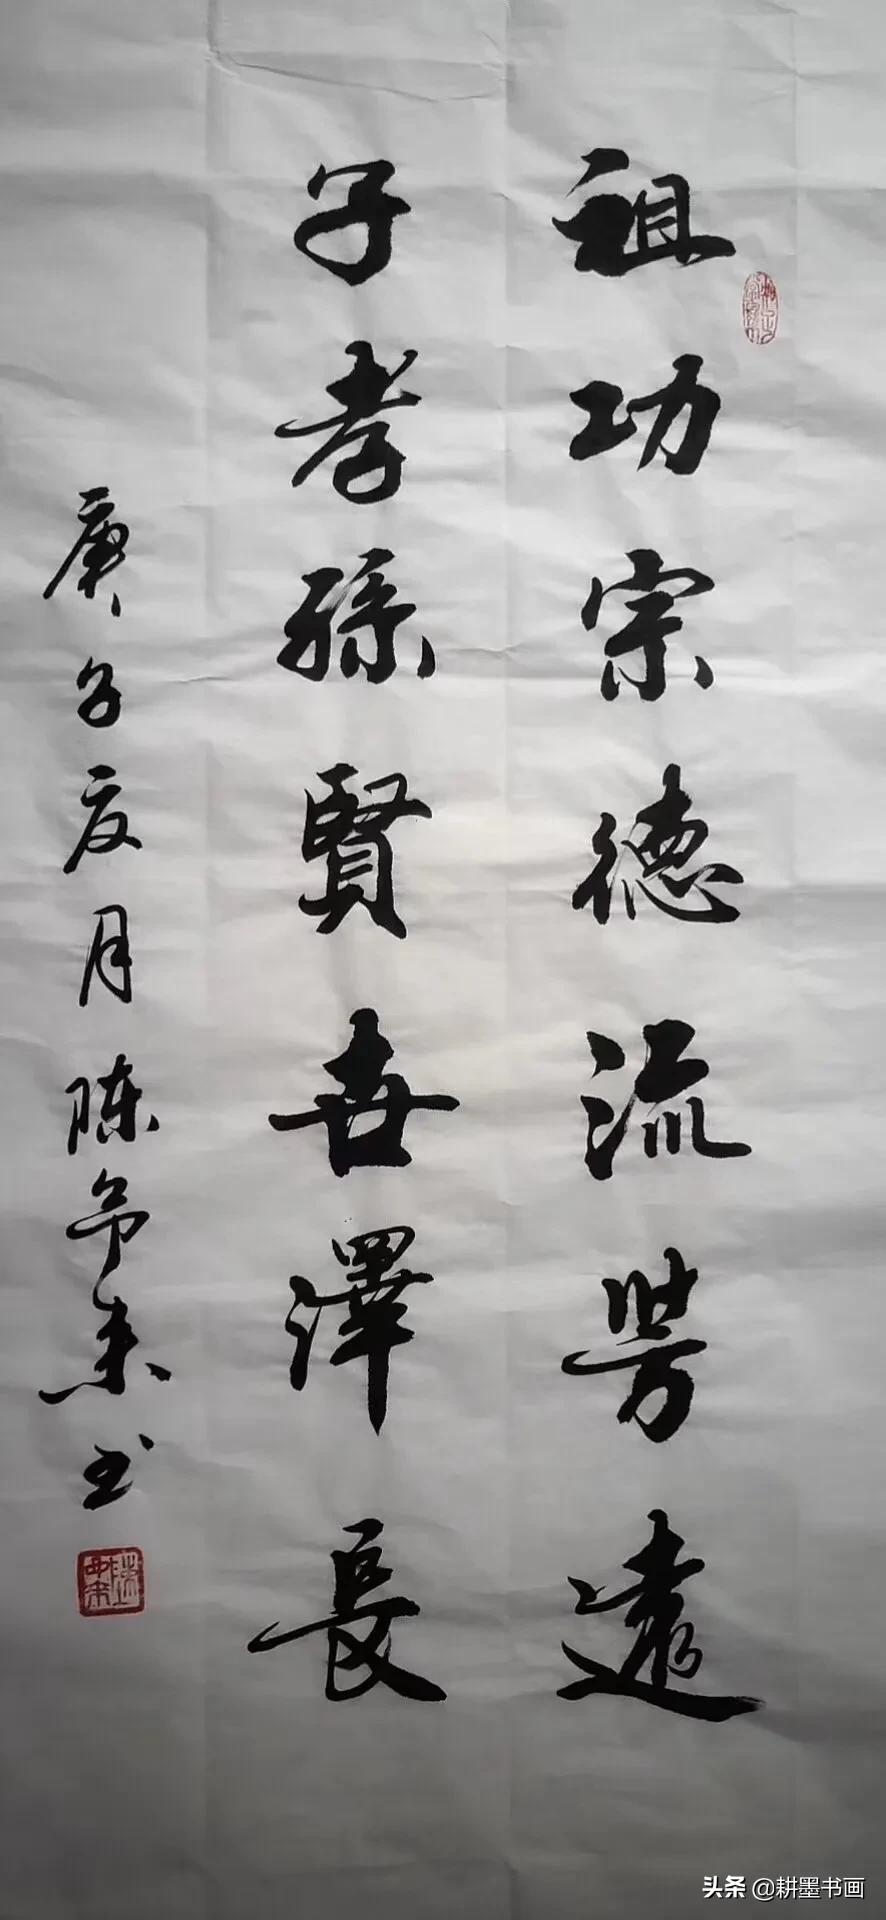 祖功宗德流芳遠
子孝孫賢世澤長
庚子夏月陈希来书
头条 @耕墨书画